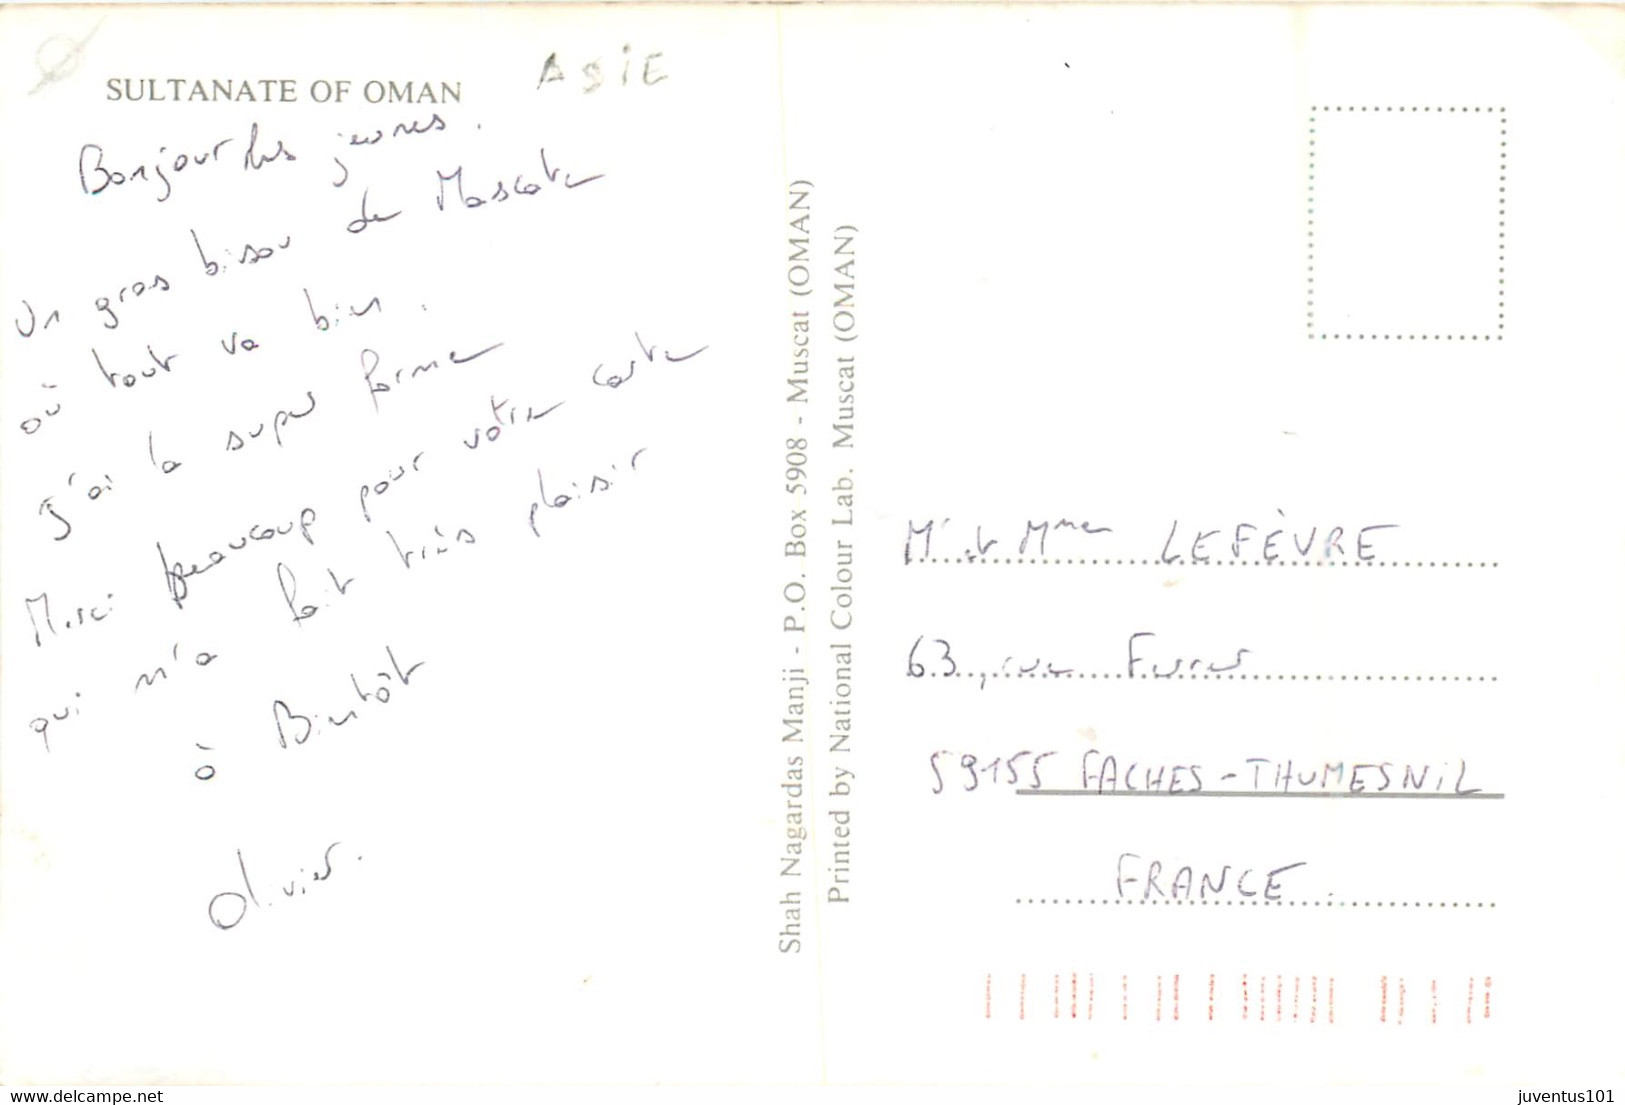 SULTANATE OF OMAN
ASIE
Bonjour les jeunes.
Un gros bisou de Mascate
où tout va bien.
J'ai la super forme
Merci beaucoup pour votre carte
qui m'a fait très plaisir
à Bientôt
Olivier.
Shah Nagardas Manji - P.O. Box 5908 - Muscat (OMAN)
Printed by National Colour Lab. Muscat (OMAN)
Mr et Mme LEFÈVRE
63, rue
59155 FACHES-THUMESNIL
FRANCE.
delcampe.net
juventus101